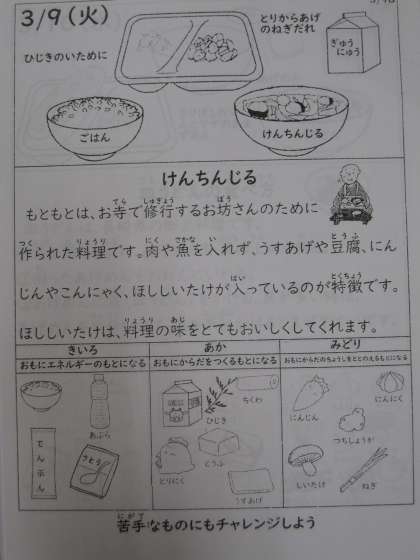 3/9(火)
とりからあげ
のねぎだれ
ぎゅう
にゅう
ひじきのいために
ごはん
けんちんじる
けんちんじる
もともとは、お寺で修行するお坊さんのために
作られた料理です。肉や魚を入れず、うすあげや豆腐、にん
じんやこんにゃく、ほししいたけが入っているのが特徴です。
ほししいたけは、料理の味をとてもおいしくしてくれます。
きいろ
あか
みどり
おもにエネルギーのもとになる
おもにからだをつくるもとになる
おもにからだのちょうしをととのえるもとになる
あぶら
でんぷん
さとう
ひじき
ちくわ
とりにく
とうふ
うすあげ
にんじん
にんにく
つちしょうが
しいたけ
ねぎ
苦手なものにもチャレンジしよう